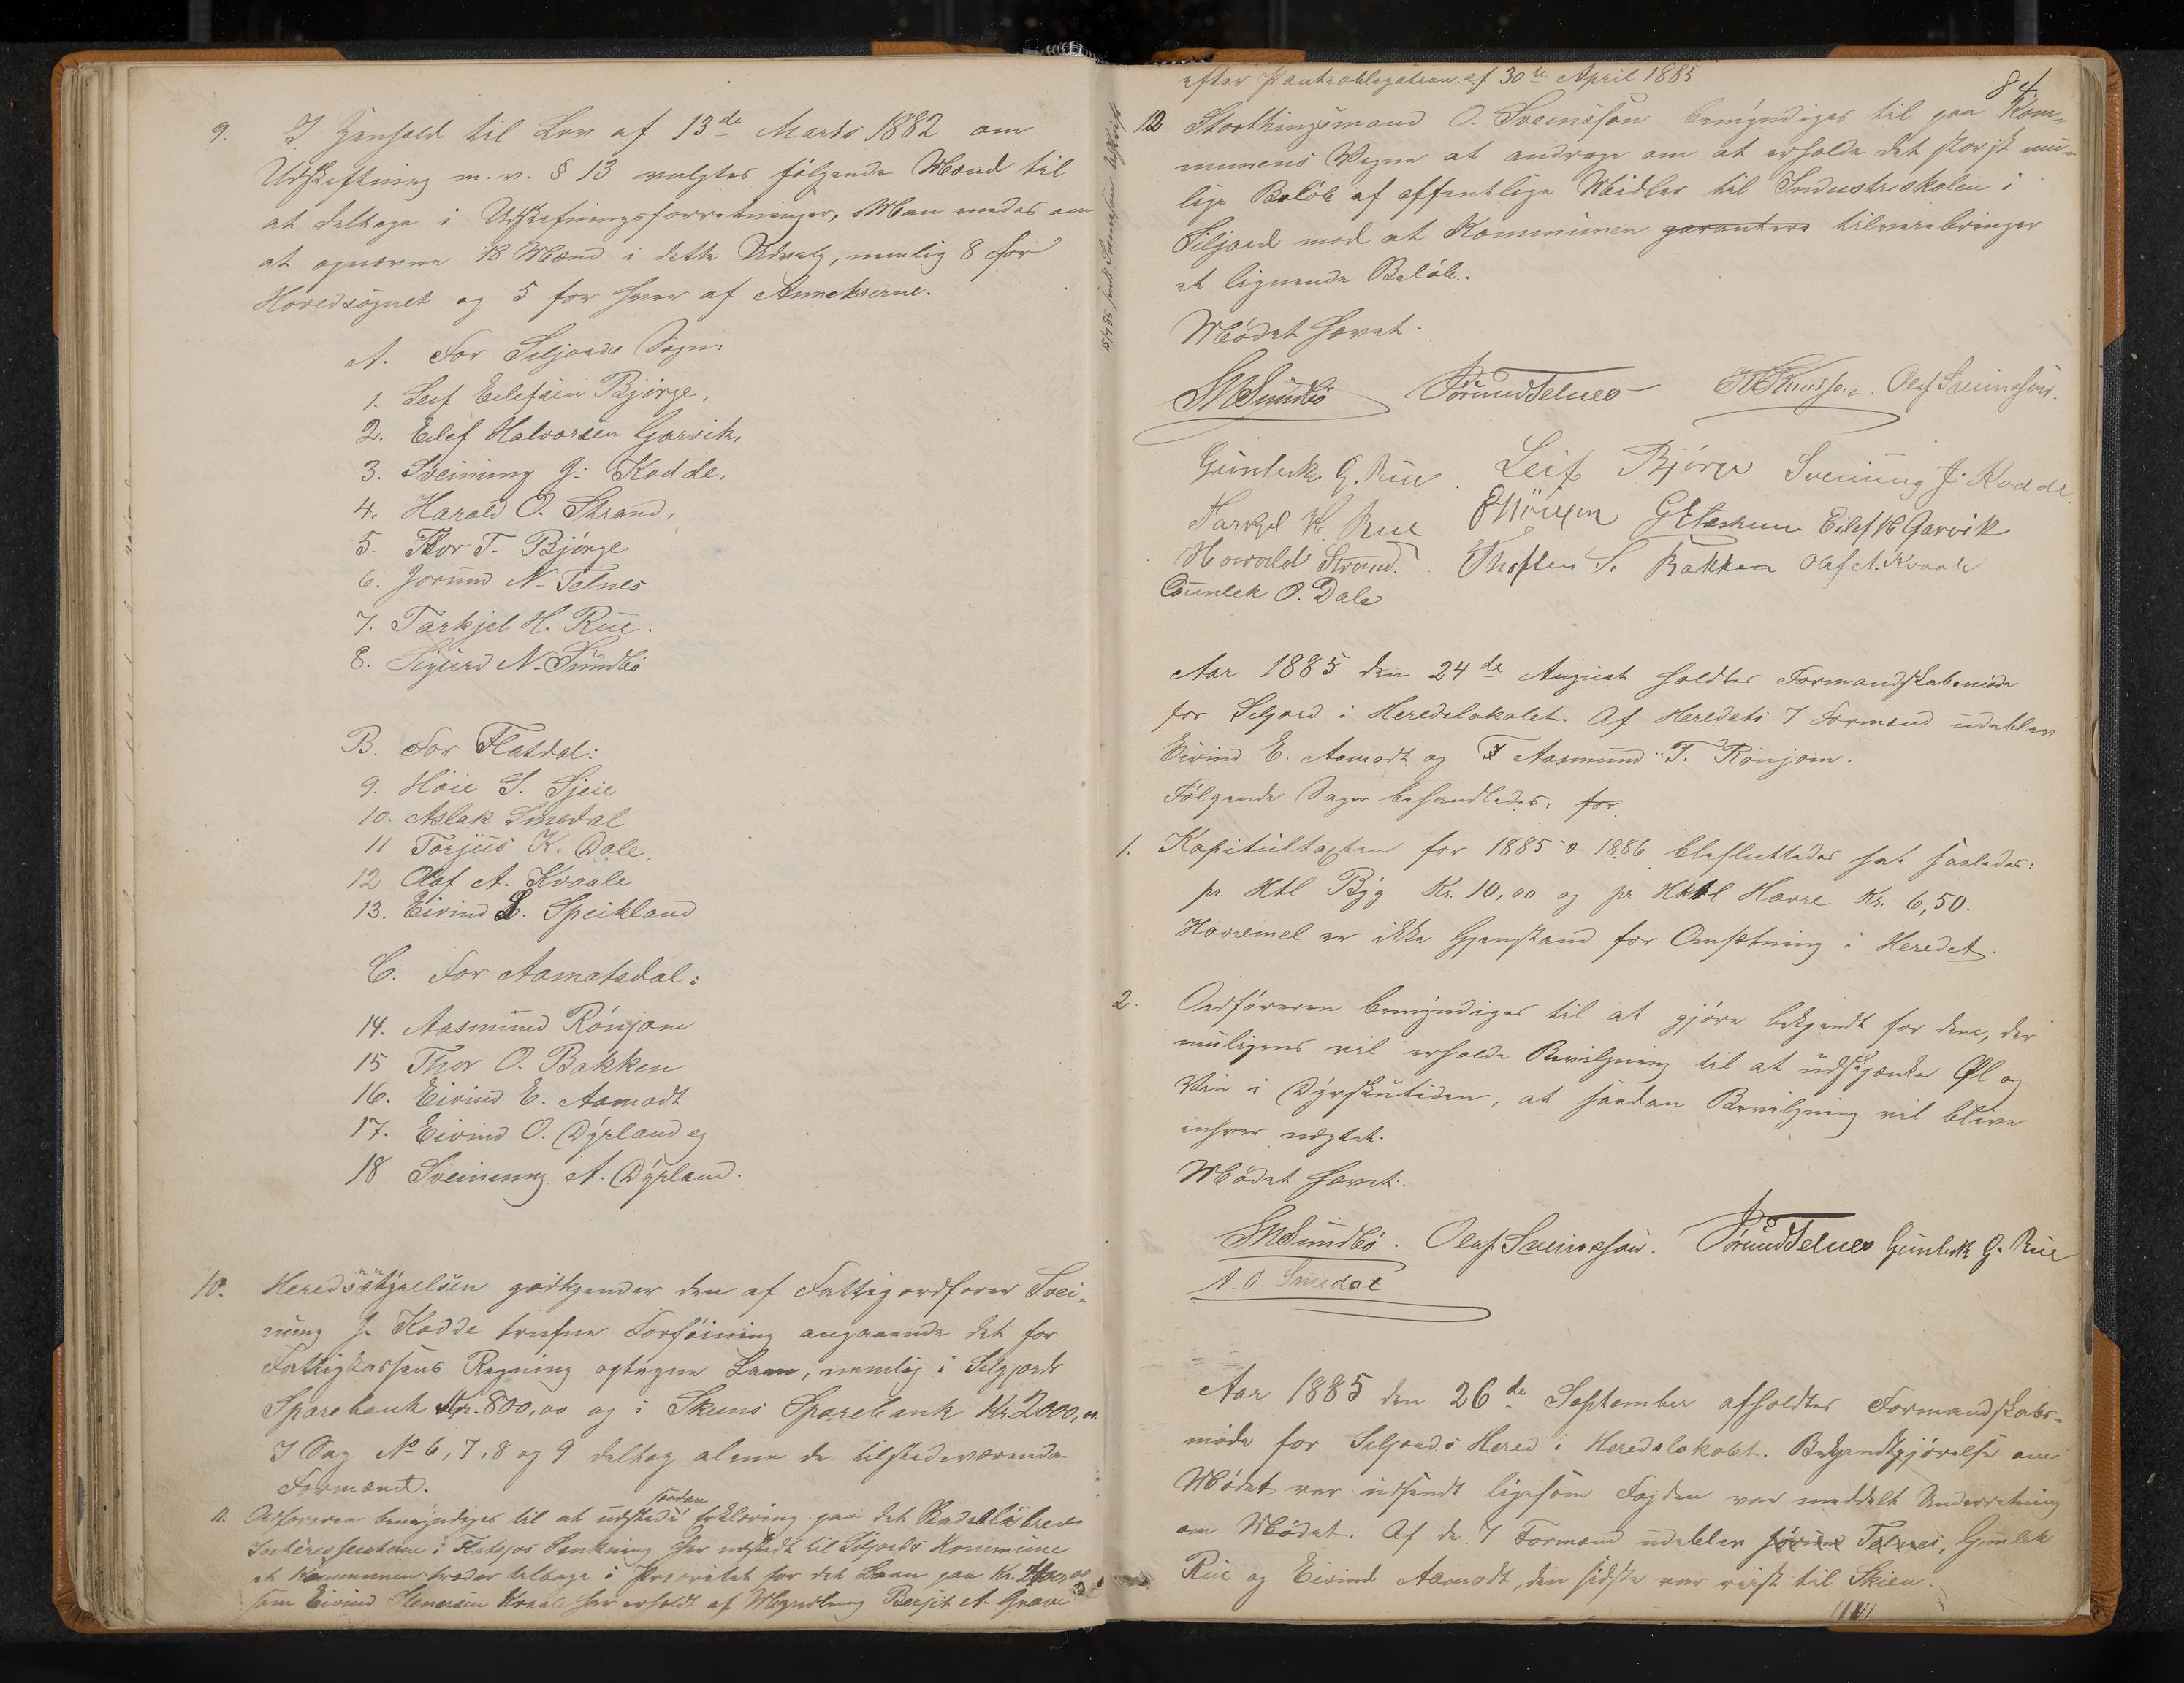 9. I Henhold til Lov af 13de Marts 1882 om
Udskiftning m. v. § 13 valgtes følgende Mænd til
at deltage i Udskiftningsforretninger, Man enedes om
at opnævne 18 Mænd i dette Udvalg, nemlig 8 for
Hovedsognet og 5 for hver af Annekserne.
A. For Seljords Sogn:
1. Leif Eilefsen Bjørge,
2. Eilef Halvorsen Garvik,
3. Sveinung J. Kodde,
4. Harald O. Strand,
5. Thor T. Bjørge
6. Jorund N. Telnes
7. Tarkjel H. Rue.
8. Sigurd N. Sundbø
B. For Flatdal:
9. Høie S. Gjeie
10. Aslak Smedal
11 Torjus K. Dale,
12 Olaf A. Kvaale
13. Eivind L. Speikland
C. For Aamotsdal:
14. Aasmund Rønjom
15 Thor O. Bakken
16. Eivind E. Aamodt
17. Eivind O. Dyrland og
18 Sveinung A. Dyrland.
10. Heredsstyrelsen godkjender den af Fattigordfører Svei-
nung J. Kodde trufne Forføining angaaende det for
Fattigkassens Regning optagne Laan, nemlig i Seljords
Sparebank Kr. 800,00 og i Skiens Sparebank Kr. 2000,00.
I Sag No 6, 7, 8 og 9 deltog alene de tilstedeværende
Formænd.
11. Ordføreren bemyndiges til at udstede saadan Erklæring paa det
Interessenterne i Flatsjøs Sænkning har udstedt til Seljords Kommune
at Kommunen træder tilbage i Prioritet for det Laan paa Kr.
som Eivind Kvaale har erholdt af Myndling Bergit A. Grave
15/7 85 sendt Sveinsson Udskrift
84
efter Panteobligation af 30te April 1885
12 Storthingsmand O. Sveinsson bemyndiges til paa Kom-
munens Vegne at andrage om at erholde det størst mu-
lige Beløb af offentlige Midler til Industriskolen i
Siljord mod at Kommunen garantere tilveiebringer
et lignende Beløb.
Mødet hævet.
SNSundbø Jorund Telnes Olaf Sveinsson.
Gunleik G. Rue. Leif Bjørge Sveinung J. Kodde.
Tarkjel H. Rue Eilef H Garvik
Harald Strand. Bakken Olaf A. Kvaale
Gunlek O. Dale
Aar 1885 den 24de August holdtes Formandskabsmøde
for Seljord i Heredslokalet. Af Heredets 7 Formænd udeblev
Eivind E. Aamodt og Aasmund T. Rønjom.
Følgende Sager behandledes: for
1. Kapiteltaxten for 1885 & 1886 besluttedes sat saaledes:
pr. Htl Byg Kr. 10,00 og pr Htl Havre Kr. 6,50.
Havremel er ikke Gjenstand for Omsætning i Heredet.
2. Ordføreren bemyndiges til at gjøre bekjendt for dem, der
muligens vil erholde Bevilgning til at udskjænke Øl og
Vin i Dyrskutiden, at saadan Bevilgning vil blive
enhver nægtet.
Mødet hævet.
SNSundbø. Olaf Sveinsson. Jorund Telnes Gunleik G. Rue
A. O. Smedal
Aar 1885 den 26de September afholdtes Formandskabs-
møde for Seljords Hered i Heredslokalet. Bekjendtgjørelse om
Mødet var udsendt ligesom Fogden var meddelt Underretning
om Mødet. Af de 7 Formænd udeblev Jorund Telnes, Gunlek
Rue og Eivind Aamodt, den sidste var reist til Skien.